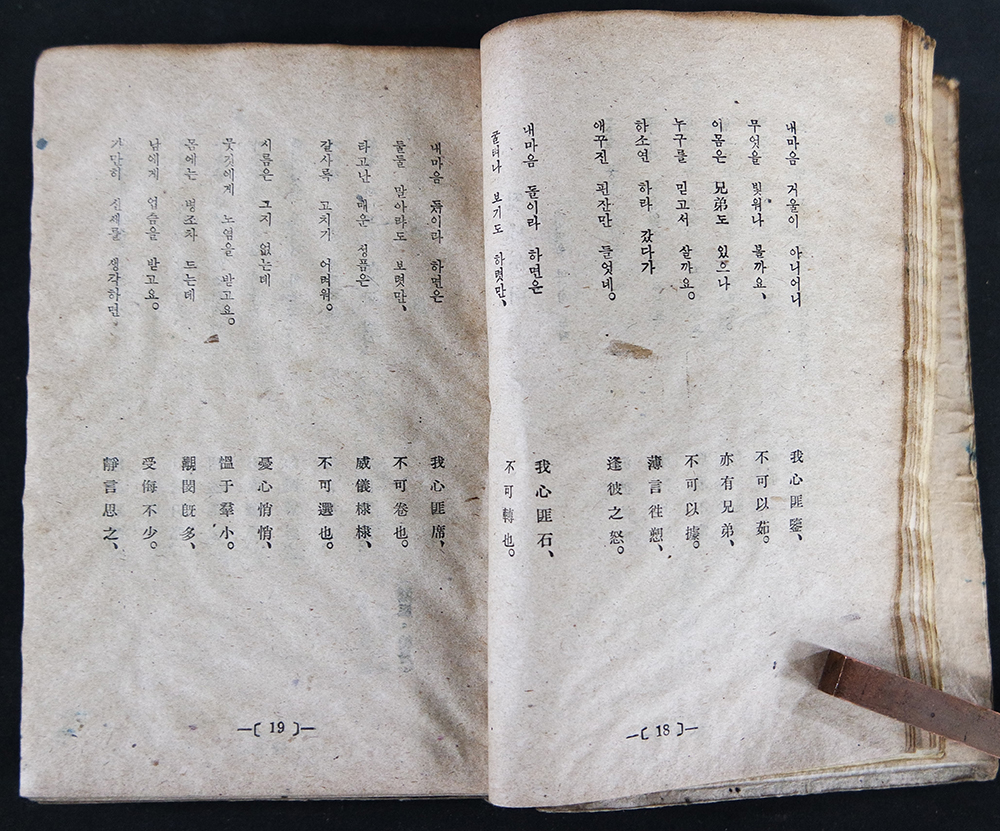 내마음 거울이 아니어니
무엇을 빛워나 볼까요、
이몸은 兄弟도 있으나
누구를 믿고서 살까요。
하소연 하라 갔다가
애꾸진 핀잔만 들엇네。
내마음 돌이라 하면은
굴려나 보기도 하렷만、
我心匪鑒、
不可以茹。
亦有兄弟、
不可以據。
薄言徃愬、
逢彼之怒。
我心匪石、
不可轉也。
—〔 18 〕—
내마음 돗이라 하면은
둘둘 말아라도 보렷만、
타고난 매운 성품은
갈사록 고치기 어려워。
시름은 그지 없는데
뭇것에게 노염을 받고요。
몸에는 병조차 드는데
남에게 업슴을 받고요。
가만히 신세를 생각하면
我心匪席、
不可卷也。
威儀棣棣、
不可選也。
憂心悄悄、
慍于羣小。
覯閔旣多、
受侮不少。
靜言思之、
—〔 19 〕—